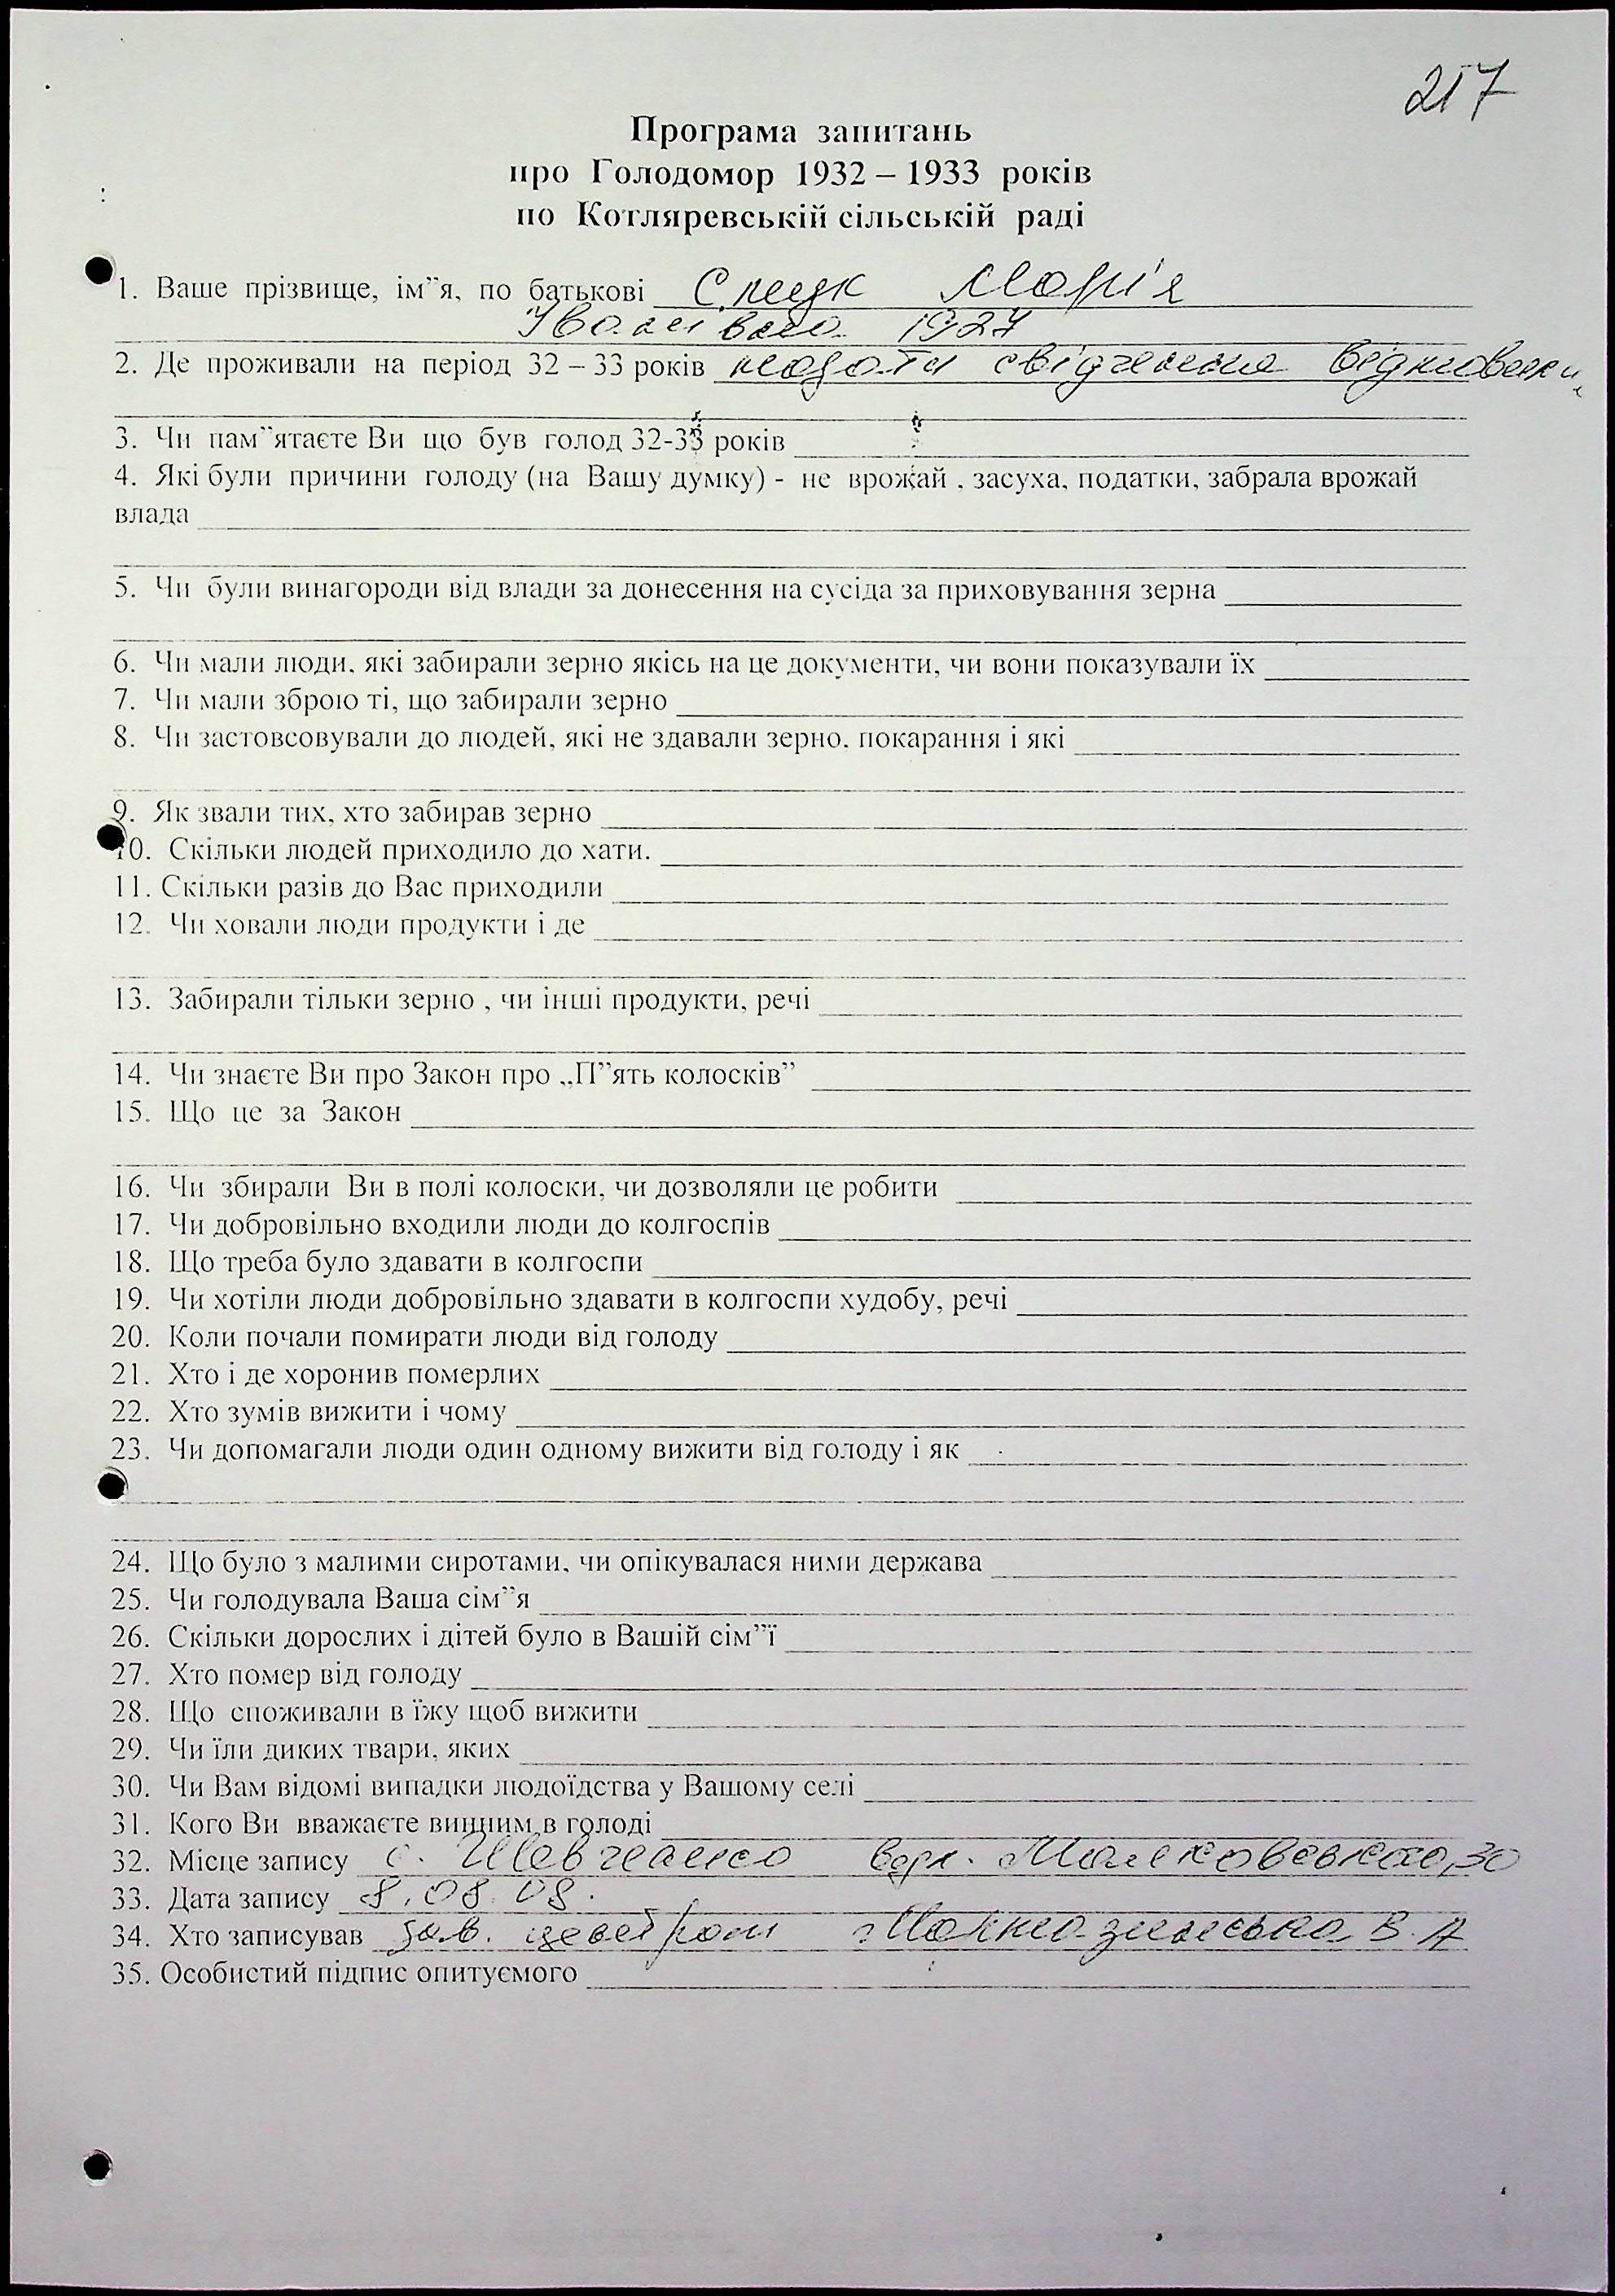 217
Програма запитань
про Голодомор 1932 – 1933 років
по Котляревській сільській раді
1. Ваше прізвище, ім"я, по батькові Марія
Іванівна 1927
2. Де проживали на період 32 – 33 років надати свідчення
3. Чи пам"ятаєте Ви що був голод 32-33 років
4. Які були причини голоду (на Вашу думку) - не врожай , засуха, податки, забрала врожай
влада
5. Чи були винагороди від влади за донесення на сусіда за приховування зерна
6. Чи мали люди, які забирали зерно якісь на це документи, чи вони показували їх
7. Чи мали зброю ті, що забирали зерно
8. Чи застовсовували до людей, які не здавали зерно, покарання і які
9. Як звали тих, хто забирав зерно
10. Скільки людей приходило до хати.
11. Скільки разів до Вас приходили
12. Чи ховали люди продукти і де
13. Забирали тільки зерно , чи інші продукти, речі
14. Чи знаєте Ви про Закон про „П"ять колосків"
15. Що це за Закон
16. Чи збирали Ви в полі колоски, чи дозволяли це робити
17. Чи добровільно входили люди до колгоспів
18. Що треба було здавати в колгоспи
19. Чи хотіли люди добровільно здавати в колгоспи худобу, речі
20. Коли почали помирати люди від голоду
21. Хто і де хоронив померлих
22. Хто зумів вижити і чому
23. Чи допомагали люди один одному вижити від голоду і як
24. Що було з малими сиротами, чи опікувалася ними держава
25. Чи голодувала Ваша сім"я
26. Скільки дорослих і дітей було в Вашій сім"ї
27. Хто помер від голоду
28. Що споживали в їжу щоб вижити
29. Чи їли диких твари, яких
30. Чи Вам відомі випадки людоїдства у Вашому селі
31. Кого Ви вважаєте винним в голоді
32. Місце запису с. Шевченко 30
33. Дата запису 8.08.08.
34. Хто записував зав. центром В. А
35. Особистий підпис опитуємого